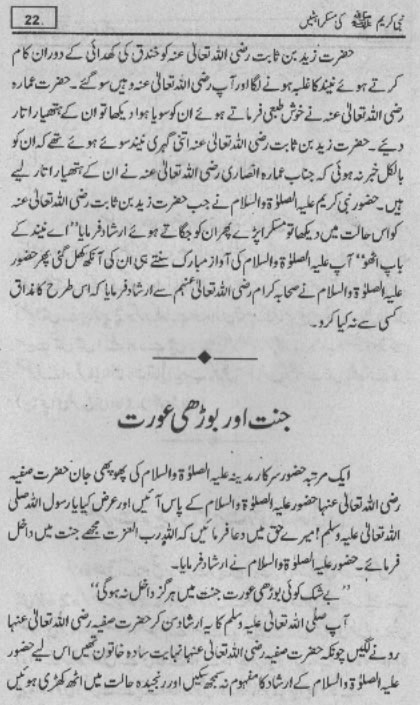 نبی کریم ﷺ کی مسکراہٹیں
22
حضرت زید بن ثابت رضی اللہ تعالیٰ عنہ کو خندق کی کھدائی کے دوران کام
کرتے ہوئے نیند کا غلبہ ہونے لگا اور آپ رضی اللہ تعالیٰ عنہ وہیں سو گئے۔ حضرت عمارہ
رضی اللہ تعالیٰ عنہ نے خوش طبعی فرماتے ہوئے ان کو سویا ہوا دیکھا تو ان کے ہتھیار اتار
دیئے۔ حضرت زید بن ثابت رضی اللہ تعالیٰ عنہ اتنی گہری نیند سوئے ہوئے تھے کہ ان کو
بالکل خبر نہ ہوئی کہ جناب عمارہ انصاری رضی اللہ تعالیٰ عنہ نے ان کے ہتھیار اتار لیے
ہیں۔ حضور نبی کریم علیہ الصلوٰۃ والسلام نے جب حضرت زید بن ثابت رضی اللہ تعالیٰ عنہ
کو اس حالت میں دیکھا تو مسکرا پڑے پھر ان کو جگاتے ہوئے ارشاد فرمایا ”اے نیند کے
باپ اٹھو“ آپ علیہ الصلوٰۃ والسلام کی آواز مبارک سنتے ہی ان کی آنکھ کھل گئی پھر حضور
علیہ الصلوٰۃ والسلام نے صحابہ کرام رضی اللہ تعالیٰ عنہم سے ارشاد فرمایا کہ اس طرح کا مذاق
کسی سے نہ کیا کرو۔
جنت اور بوڑھی عورت
ایک مرتبہ حضور سرکار مدینہ علیہ الصلوٰۃ والسلام کی پھوپھی جان حضرت صفیہ
رضی اللہ تعالیٰ عنہا حضور علیہ الصلوٰۃ والسلام کے پاس آئیں اور عرض کیا یا رسول اللہ صلی
اللہ تعالیٰ علیہ وسلم! میرے حق میں دعا فرمائیں کہ اللہ رب العزت مجھے جنت میں داخل
فرمائے۔ حضور علیہ الصلوٰۃ والسلام نے ارشاد فرمایا۔
”بے شک کوئی بوڑھی عورت جنت میں ہرگز داخل نہ ہو گی“
آپ صلی اللہ تعالیٰ علیہ وسلم کا یہ ارشاد سن کر حضرت صفیہ رضی اللہ تعالیٰ عنہا
رونے لگیں چونکہ حضرت صفیہ رضی اللہ تعالیٰ عنہا نہایت سادہ خاتون تھیں اس لیے حضور
علیہ الصلوٰۃ والسلام کے ارشاد کا مفہوم نہ سمجھ سکیں اور رنجیدہ حالت میں اٹھ کھڑی ہوئیں